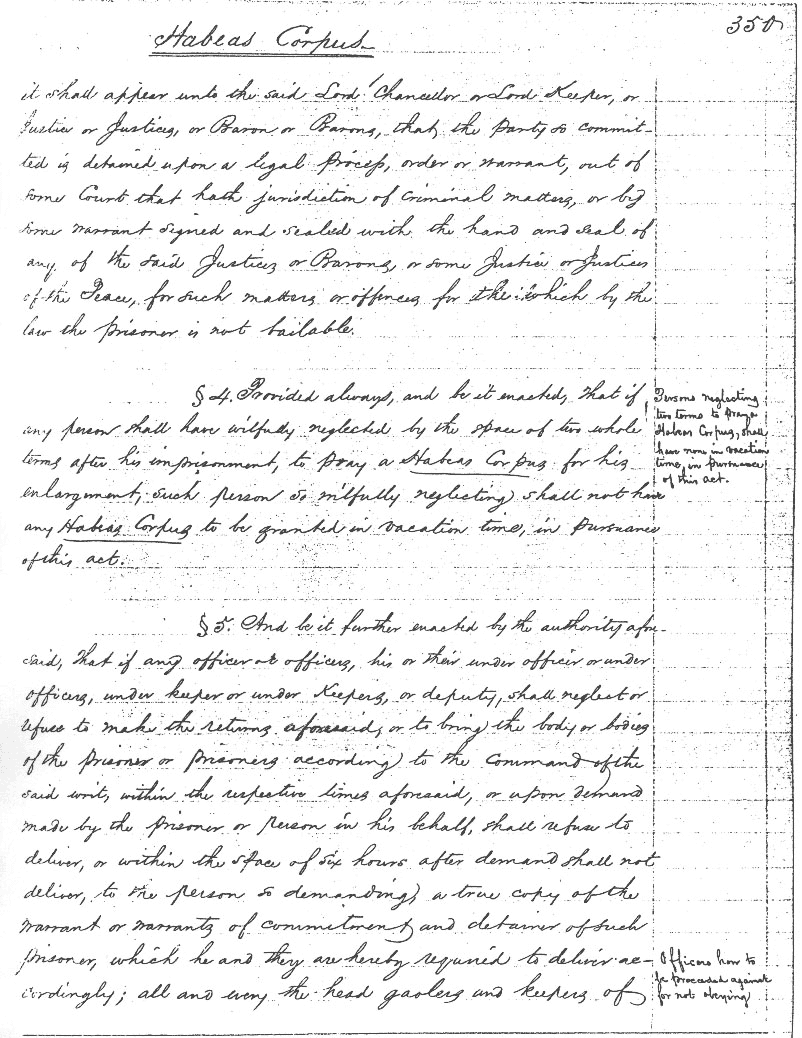 350
Habeas Corpus
it shall appear unto the said Lord Chancellor or Lord Keeper, or
Justice or Justices, or Baron or Barons, that, the Party so commit-
ted is detained upon a legal Process, order or warrant, out of
some Court that hath jurisdiction of Criminal matters, or by
some warrant signed and sealed with the hand and seal of
any of the said Justices or Barons, or some Justice or Justices
of the Peace, for such matters or offences for the which by the
law the Prisoner is not bailable.
§ 4. Provided always, and be it enacted, That if
any person shall have wilfully neglected by the space of two whole
terms after his imprisonment, to pray a Habeas Corpus for his
enlargement, such person so wilfully neglecting shall not have
any Habeas Corpus to be granted in vacation time, in Pursuance
of this act.
Persons neglecting
two terms to pray a
Habeas Corpus, shall
have none in vacation
time, in pursuance
of this act.
§ 5. And be it further enacted by the authority afore-
said, That if any officer or officers, his or their under officer or under
officers, under keeper or under Keepers, or deputy, shall neglect or
refuse to make the returns aforesaid, or to bring the body or bodies
of the Prisoner or Prisoners according to the Command of the
said writ, within the respective times aforesaid, or upon demand
made by the Prisoner or Person in his behalf, shall refuse to
deliver, or within the space of six hours after demand shall not
deliver, to the person so demanding, a true copy of the
warrant or warrants of commitment and detainer of such
Prisoner, which he and they are hereby required to deliver ac-
cordingly; all and every the head gaolers and keepers of
Officers how to
be proceeded against
for not obeying